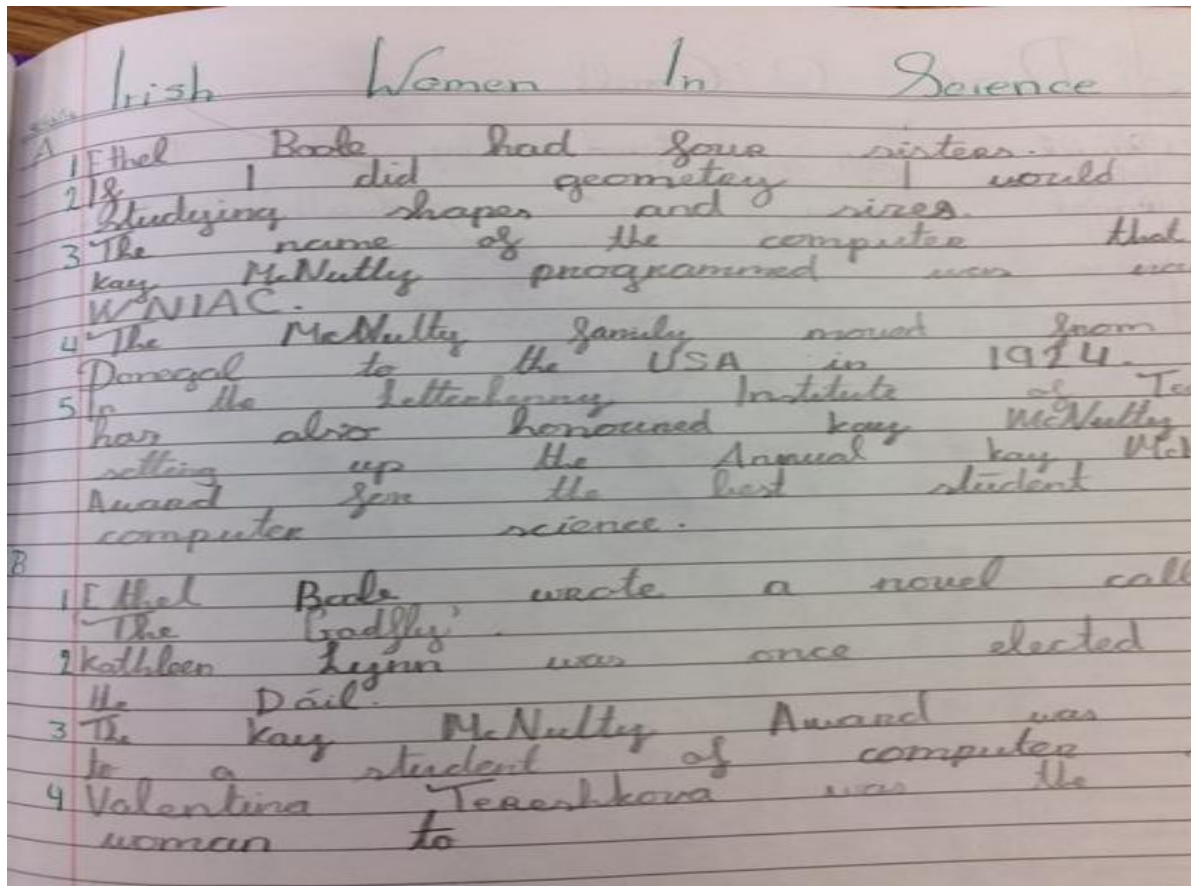 Irish Women In Science
A
1 Ethel Boole had four sisters.
2 If I did geometry I would
Studying shapes and sizes.
3 The name of the computer that
Kay McNutly programmed was
WNIAC.
4 The McNulty family moved from
Donegal to the USA in 1924.
5 In the Letterkenny Institute of Te
has also honoured Kay McNulty
setting up the Annual Kay McN
Award for the best student
computer science.
B
1 Ethel Boole wrote a novel call
'The Gadfly'.
2 Kathleen Lynn was once elected
the Dáil.
3 The Kay McNulty Award was
to a student of computer
4 Valentina Tereshkova was the
woman to